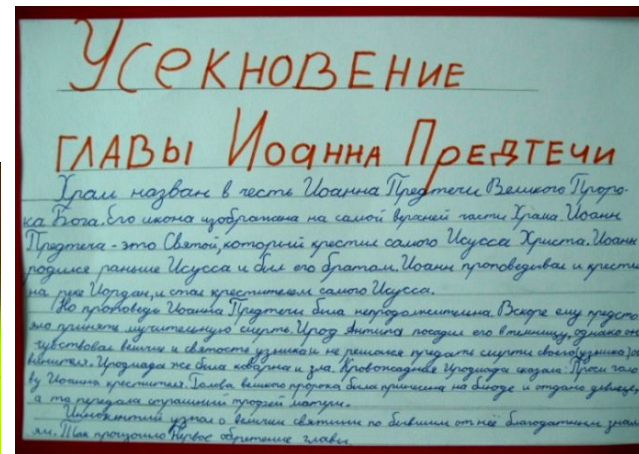 Усекновение
главы Иоанна Предтечи
Храм назван в честь Иоанна Предтечи Великого Проро-
ка Бога. Его икона изображена на самой верхней части Храма. Иоанн
Предтеча - это Святой, который крестил самого Исусса Христа. Иоанн
родился раньше Исусса и был его братом. Иоанн проповедывал и крестил
на реке Иордан, и стал крестителем самого Исусса.
Но проповедь Иоанна Предтечи была непродолжительна. Вскоре ему предсто
яло принять мучительную смерть. Ирод Антипа посадил его в темницу, однако он
чувствовал величие и святость узника и не решался предать смерти своего
Иродиада же была коварна и зла. Кровожадная Иродиада сказала: Проси голо
ву Иоанна крестителя. Голова великого пророка была принесена на блюде и отдана девице,
а та передала страшный трофей матери.
узнал о величии святыни по бывшим от неё благодатным знам
ям. Так произошло Первое обретение главы.